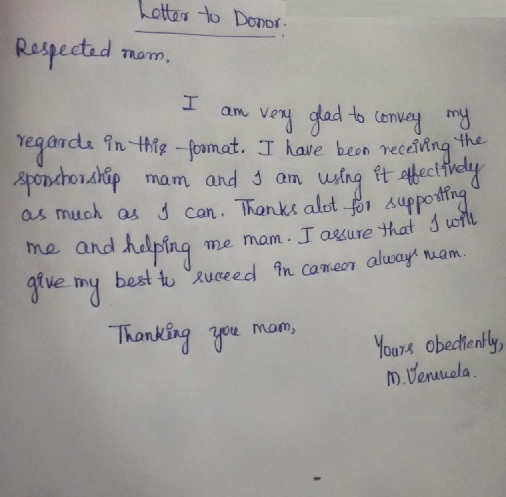 Letter to Donor.
Respected mam,
I am very glad to convey my
regards in this format. I have been receiving the
sponshorship mam and I am using it effectively
as much as I can. Thanks alot for supporting
me and helping me mam. I assure that I will
give my best to suceed in career always mam.
Thanking you mam,
Yours obediently,
M.